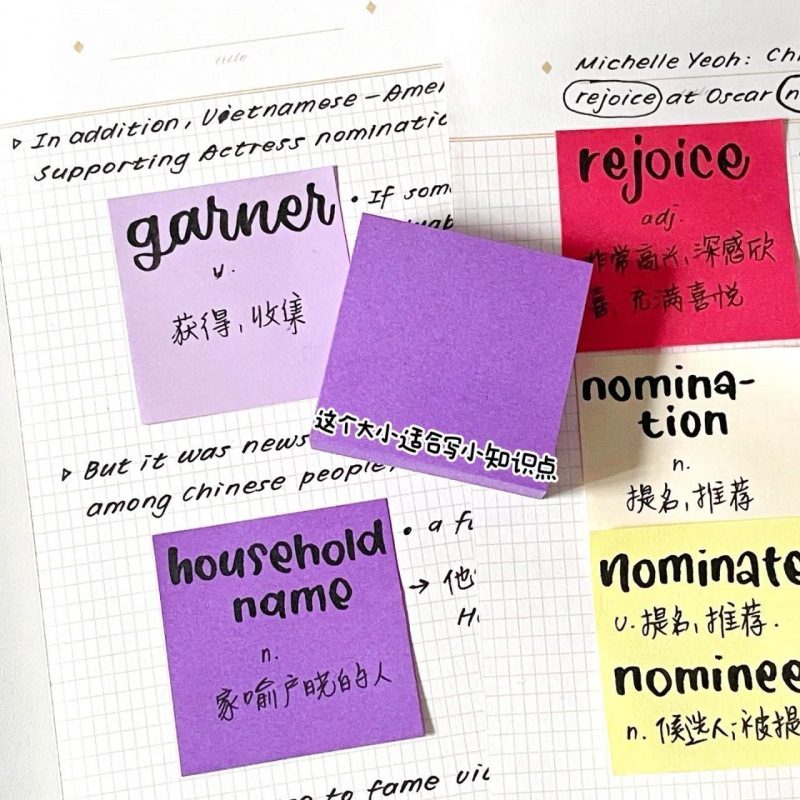 title
▹ In addition, Vietnamese-Amer
Supporting Actress nominatio
garner
v.
获得,收集
• If som
这个大小适合写小知识点
▹ But it was news
among Chinese people,
household
name
n.
家喻户晓的人
• a fi
→ 他
H
to fame vi
Michelle Yeoh: Chi
rejoice at Oscar n
rejoice
adj.
非常高兴,深感欣
喜,充满喜悦
nomina-
tion
n.
提名,推荐
nominate
v.提名,推荐.
nominee
n. 候选人;被提